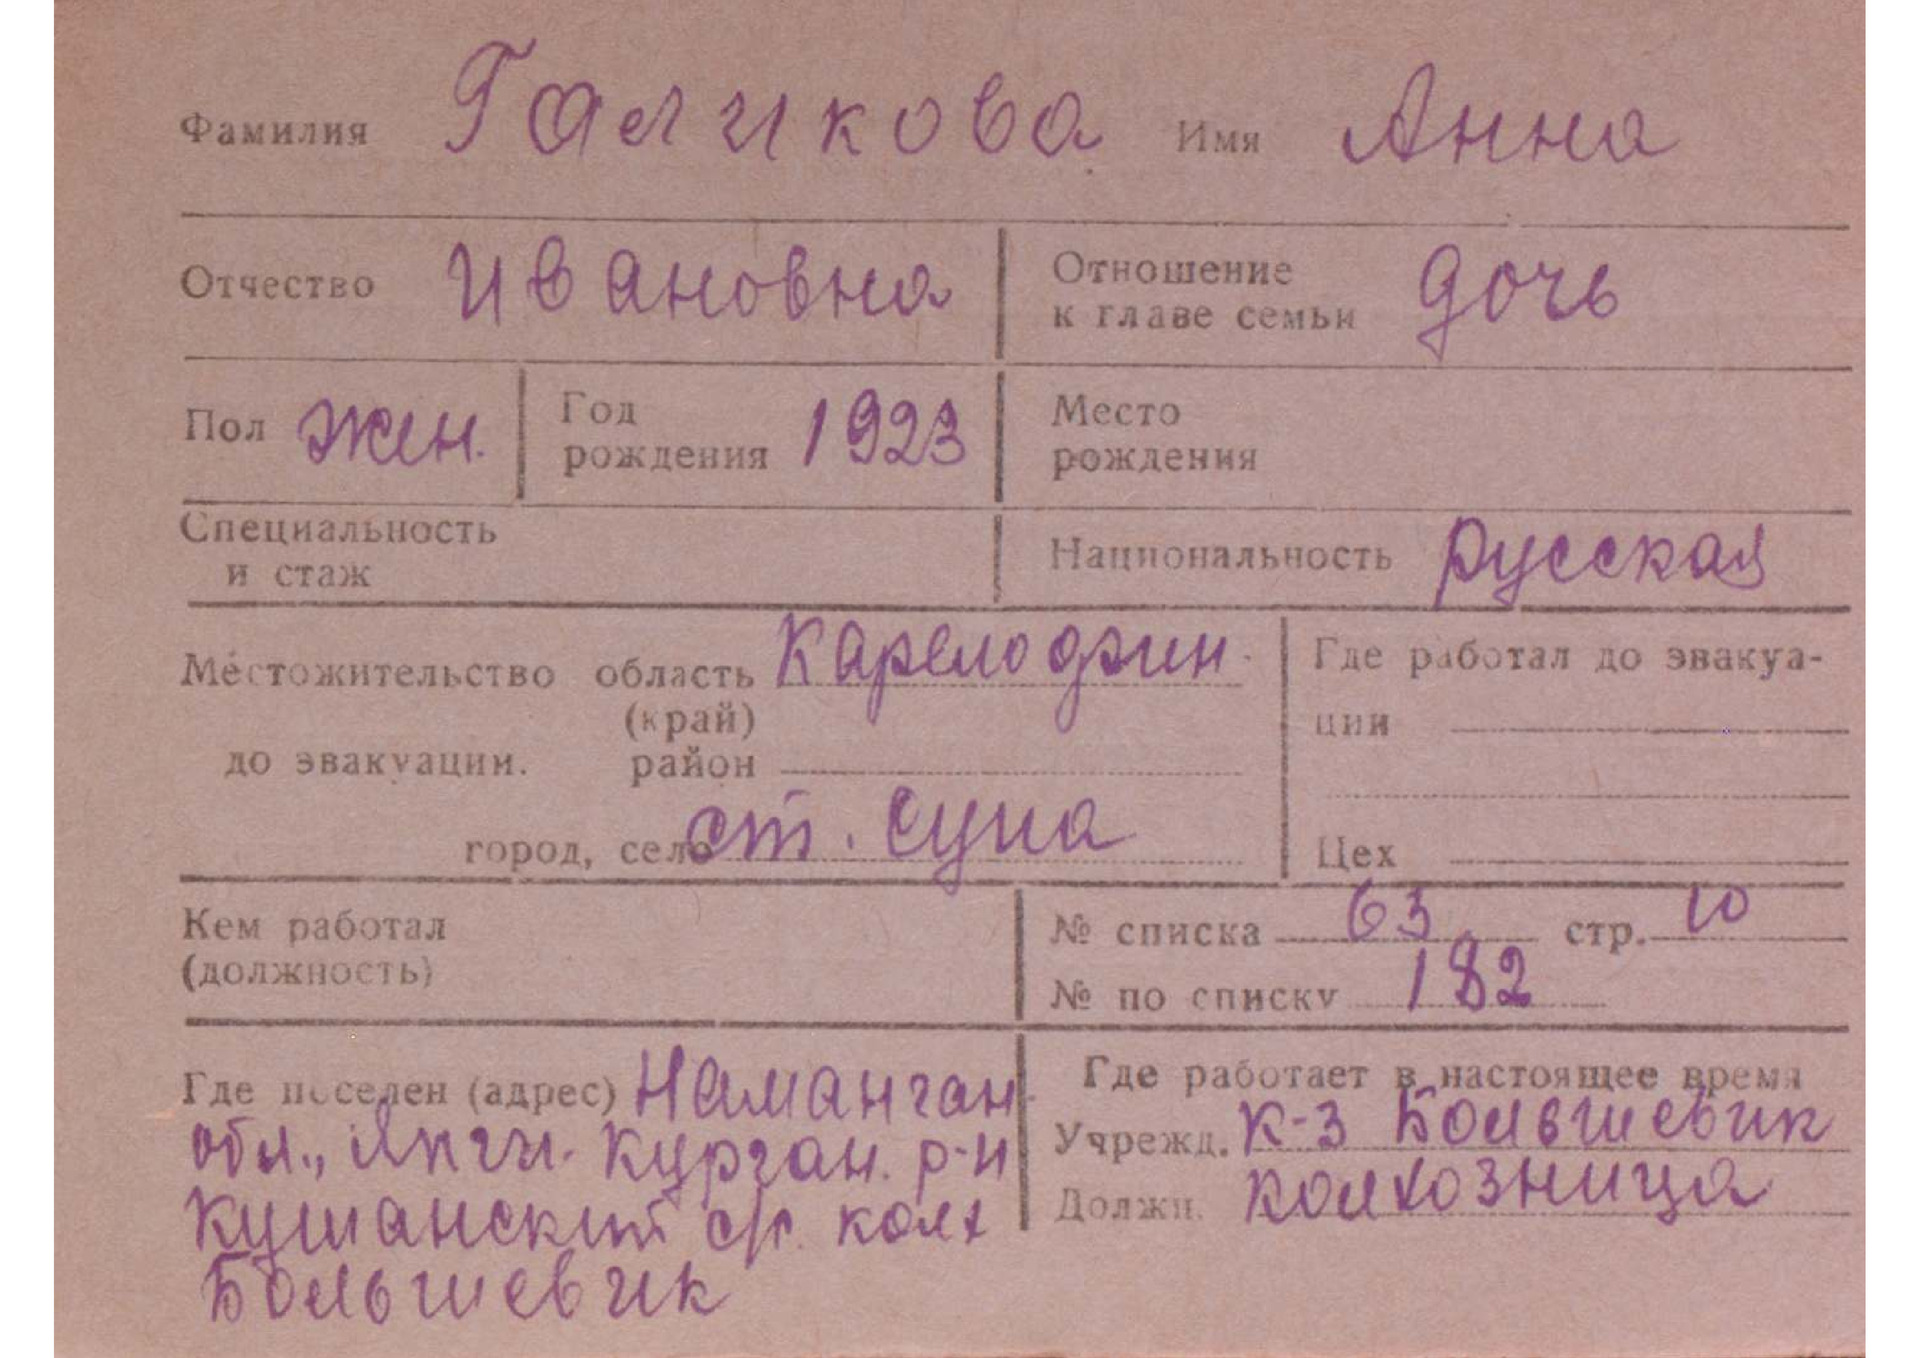 Фамилия Галикова Имя Анна
Отчество Ивановна Отношение
к главе семьи дочь
Пол жен. Год
рождения 1923 Место
рождения
Специальность
и стаж
Национальность русская
Местожительство область Карелофин.
(край)
до эвакуации. район
город, село ст. Суна
Где работал до эвакуа-
ции
Цех
Кем работал
(должность)
№ списка 63 стр. 10
№ по списку 182
Где поселен (адрес) Наманган.
обл., Янги-Курган. р-н
Кушанский с/с. колх
Большевик
Где работает в настоящее время
Учрежд. к-з Большевик
Должн. колхозница